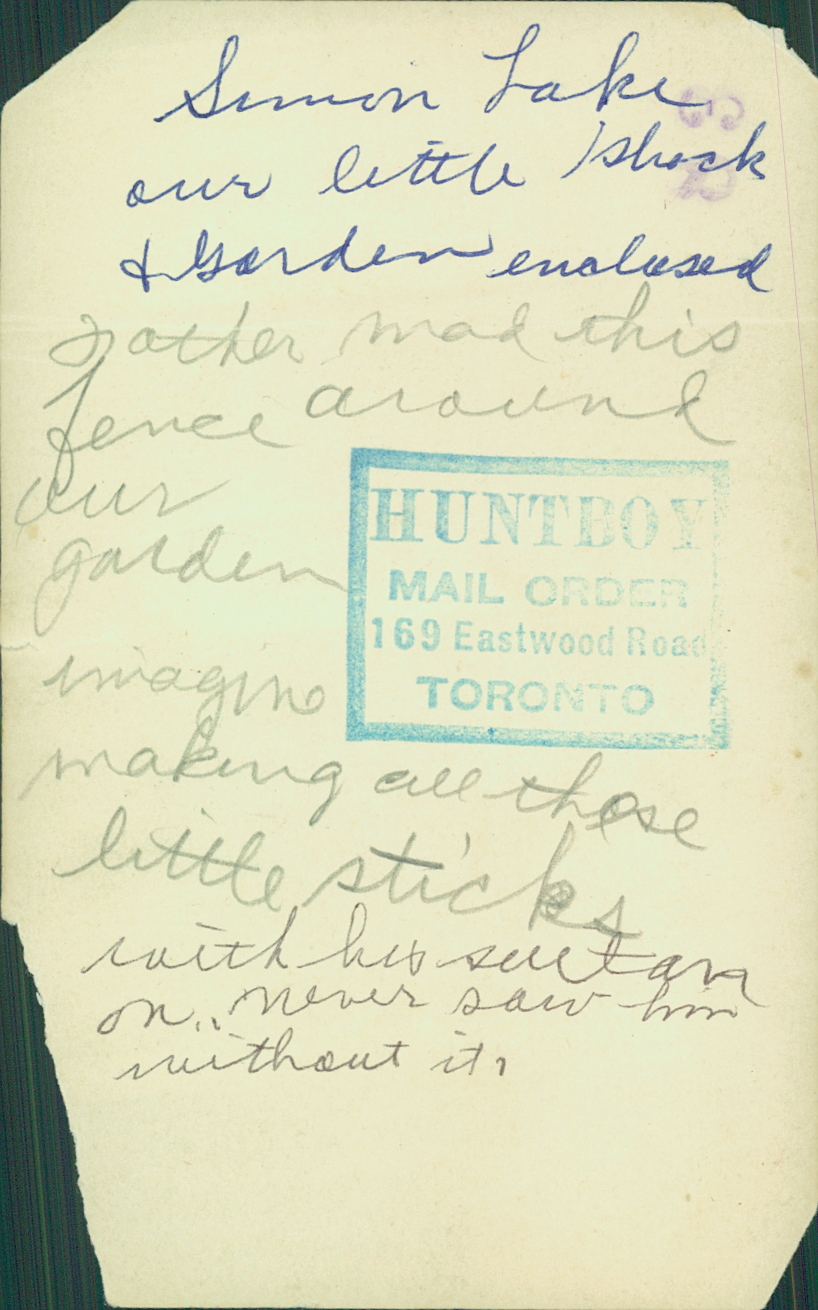 Simon Lake
our little shack
& Garden enclosed
Father mad this
fence around
our
garden
HUNTBOY
MAIL ORDER
169 Eastwood Road
TORONTO
imagine
making all those
little sticks
with his suit
on.. never saw him
without it,